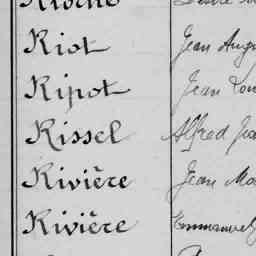 Riot Jean
Ripot Jean
Rissel Alfred
Rivière Jean
Rivière Emmanuel